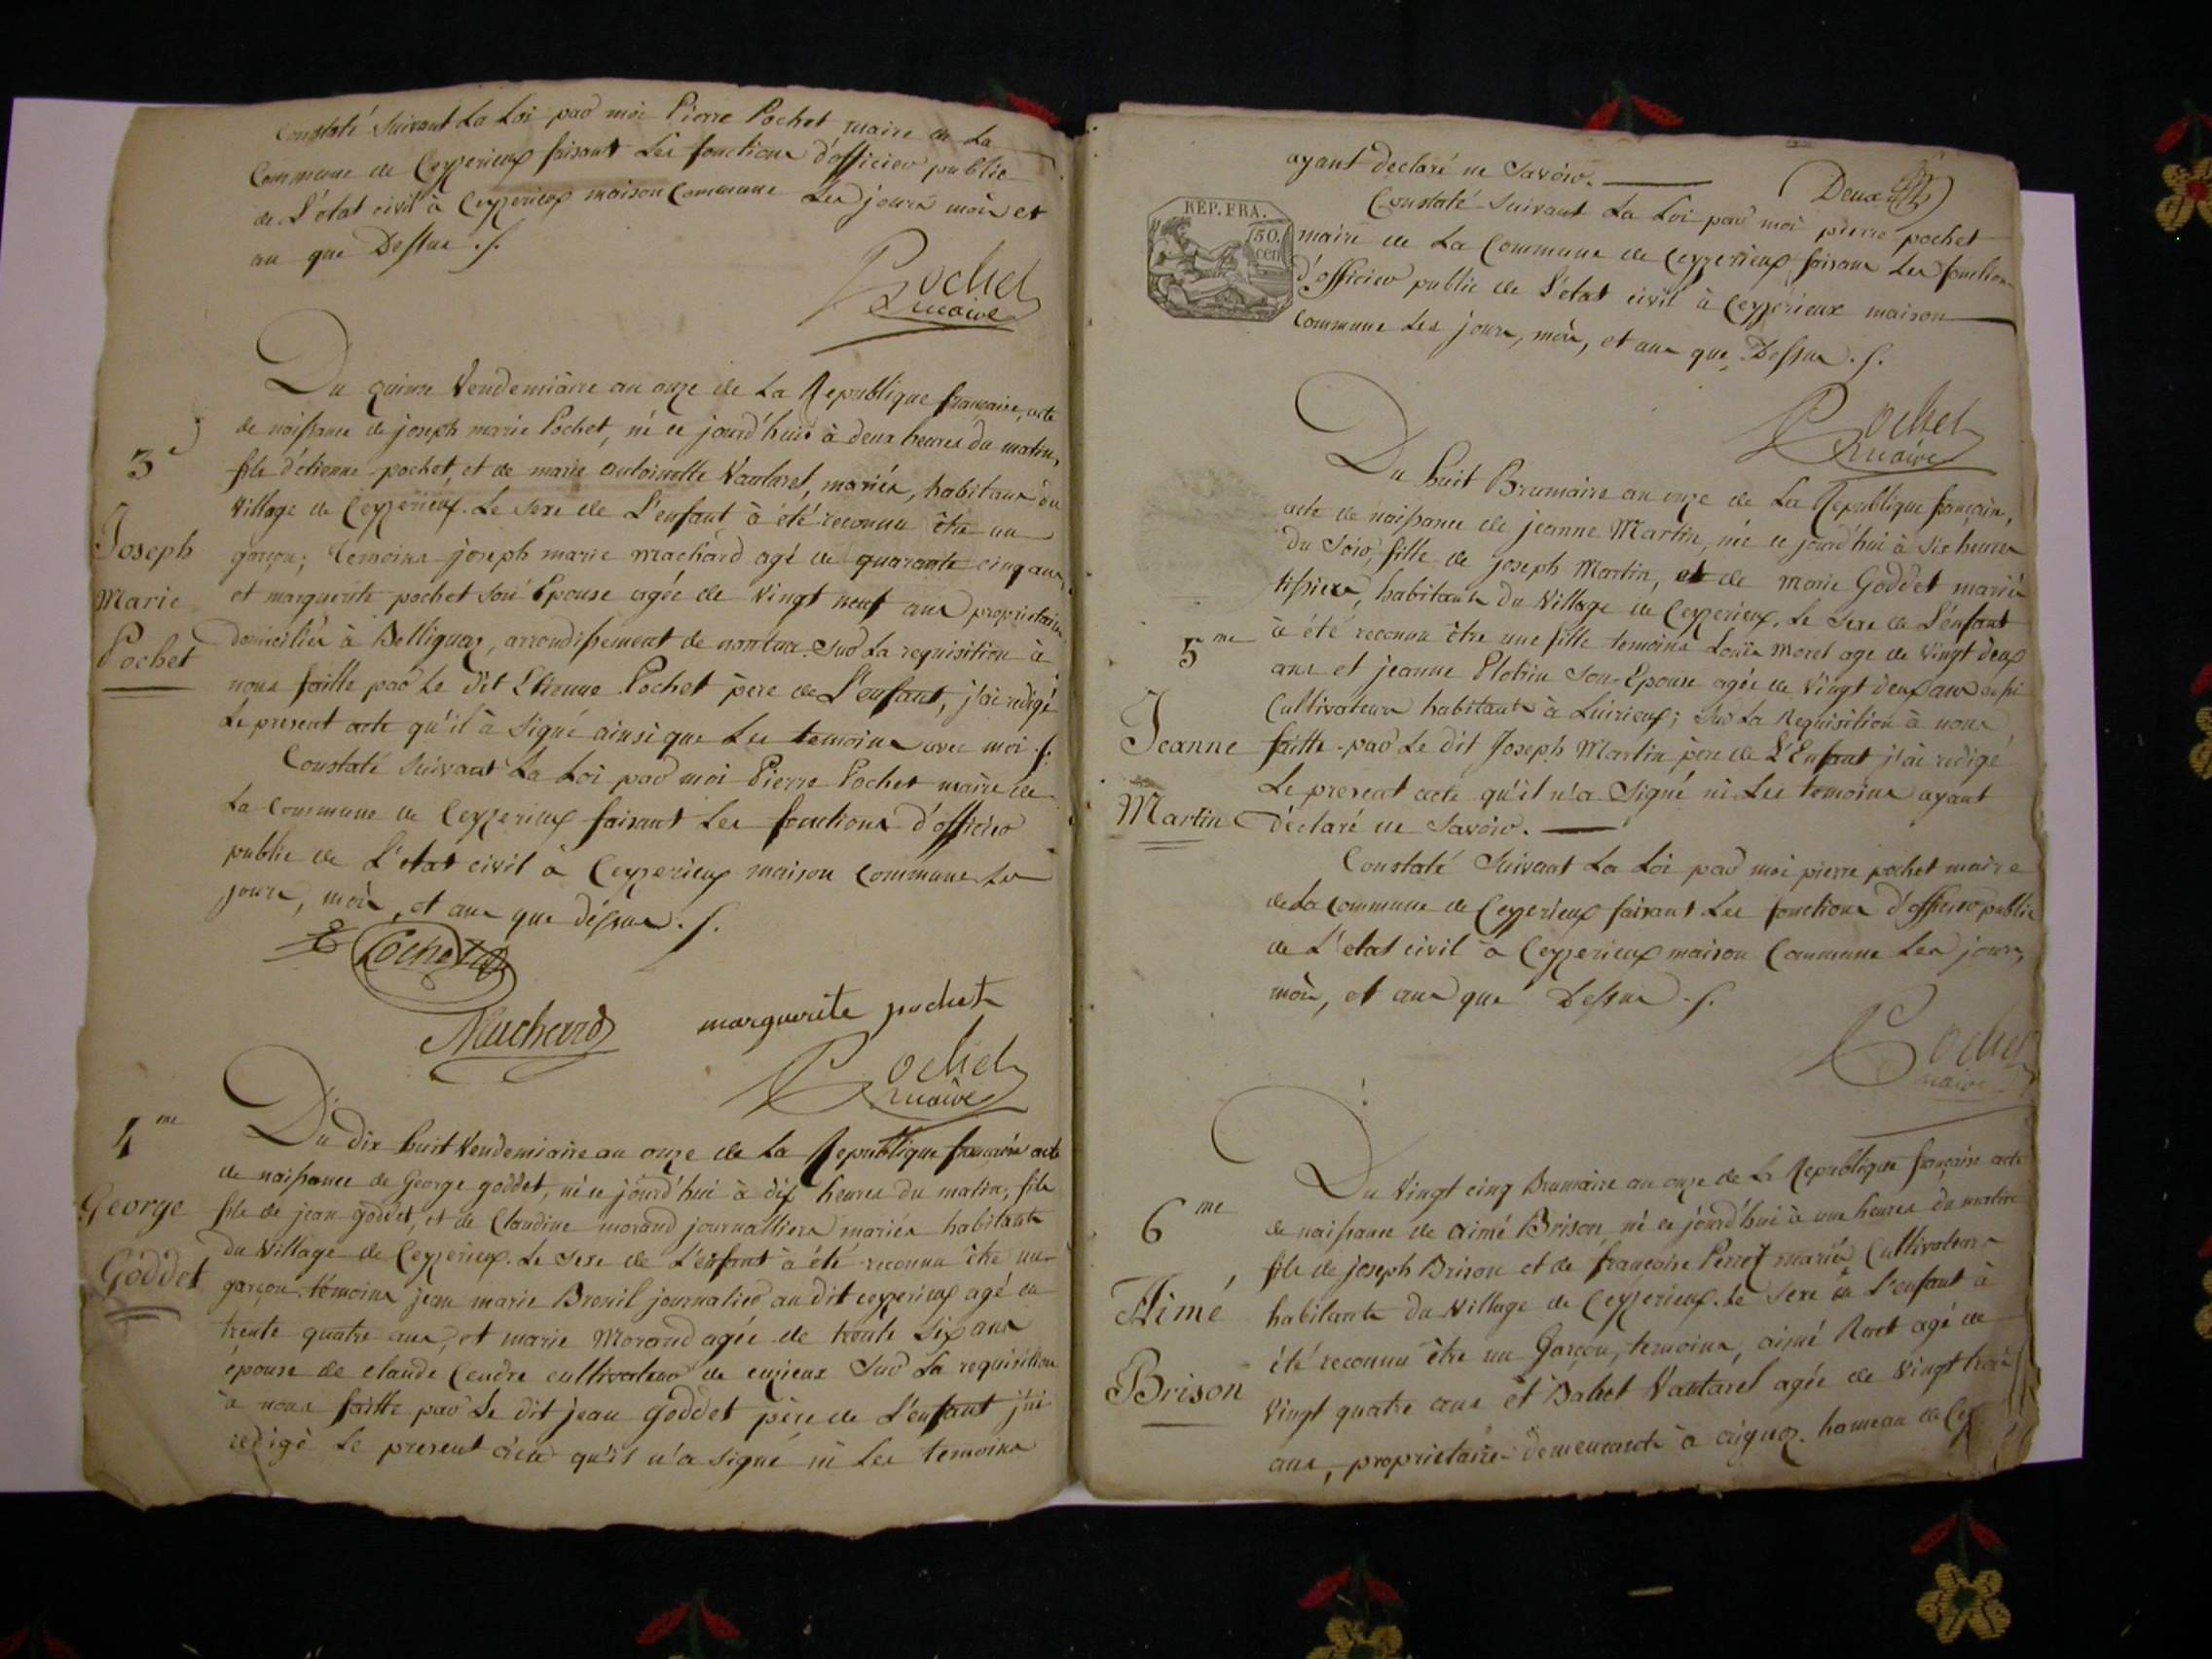 Constaté Suivant La Loi par moi Pierre Pochet maire de La
Commune de Ceyzerieux faisant Les fonctions d'officier public
de L'état civil à Ceyzerieux maison Commune Les jours mois et
an que Dessus .
Pochet
maire
Du quinze Vendemiaire an onze de La Republique française, acte
de naissance de joseph marie Pochet, né ce jourd'hui à deux heures du matin,
fils d'étienne pochet, et de marie antoinette Vautaret, mariés, habitans du
Village de Ceyzerieux. Le Sexe de L'enfant à été reconnu être un
garçon; Temoins joseph marie machard agé de quarante cinq ans,
et marguerite pochet son Epouse agée de Vingt neuf ans proprietaires
domiciliés à Belliguax, arrondissement de nantua. Sur La requisition à
nous faitte par Le dit Etienne Pochet père de L'enfant, j'ai redigé
Le present acte qu'il à Signé ainsi que Les temoins avec moi .
Constaté Suivant La Loi par moi Pierre Pochet maire de
La Commune de Ceyzerieux faisant Les fonctions d'officier
public de L'etat civil à Ceyzerieux maison Commune Les
jours, mois, et an que déssus .
3
Joseph
Marie
Pochet
Pochet
Machard
marguerite pochet
Pochet
maire
Du dix huit Vendemiaire an onze de La Republique française acte
de naissance de George goddet, né ce jourd'hui à dix heures du matin, fils
fils de jean goddet, et de Claudine morand journalliers mariés habitants
du Village de Ceyzerieux. Le Sexe de L'enfant à été reconnu être un
garçon. témoins jean marie Brenil journalier au dit ceyzerieux agé de
trente quatre ans, et marie Morand agée de trente Six ans
épouse de claude Cendre cultivateur de cuzieux Sur La requisition
à nous faitte par Le dit jean goddet père de L'enfant j'ai
redigé Le present acte qu'il n'a signé ni Les temoins
4me
George
Goddet
ayant declaré ne Savoir.
Deux
REP. FRA.
50.
cen
Constaté Suivant La Loi par moi pierre pochet
maire de La Commune de Ceyzerieux faisant Les fonctions
d'officier public de L'etat civil à Ceyzérieux maison
Commune Les jours, mois, et ans que Dessus .
Pochet
maire
Du huit Brumaire an onze de La Republique française,
acte de naissance de jeanne Martin, née ce jourd'hui à Six heures
du Soir, fille de joseph Martin, et de marie Goddet mariés
tissiers, habitants du Village de Ceyzerieux. Le Sexe de L'enfant
à été reconnu être une fille temoins Louis Morel age de Vingt deux
ans et jeanne Plotin Son Epouse agée de Vingt deux ans aussi
Cultivateurs habitants à Luirieux; Sur La Requisition à nous
faitte par Le dit Joseph Martin père de L'Enfant j'ai redigé
Le present acte qu'il n'a Signé ni Les temoins ayant
déclaré ne Savoir.
5me
Jeanne
Martin
Constaté Suivant La Loi par moi pierre pochet maire
de La Commune de Ceyzerieux faisant Les fonctions d'officier public
de L'etat civil à Ceyzerieux maison Commune Les jours,
mois, et ans que Dessus .
Pochet
maire
Du Vingt cinq Brumaire an onze de La Republique française acte
de naissance de aimé Brison né ce jourd'hui à une heures du matin
fils de joseph Brison et de françoise Perret mariés Cultivateurs
habitants du Village de Ceyzerieux. Le Sexe de L'enfant à
été reconnu être un Garçon, temoins, aimé Ruet agé de
Vingt quatre ans et Babet Vautaret agée de Vingt trois
ans, proprietaires demeurants à aignoz. hameau de Cey
6me
Aimé
Brison